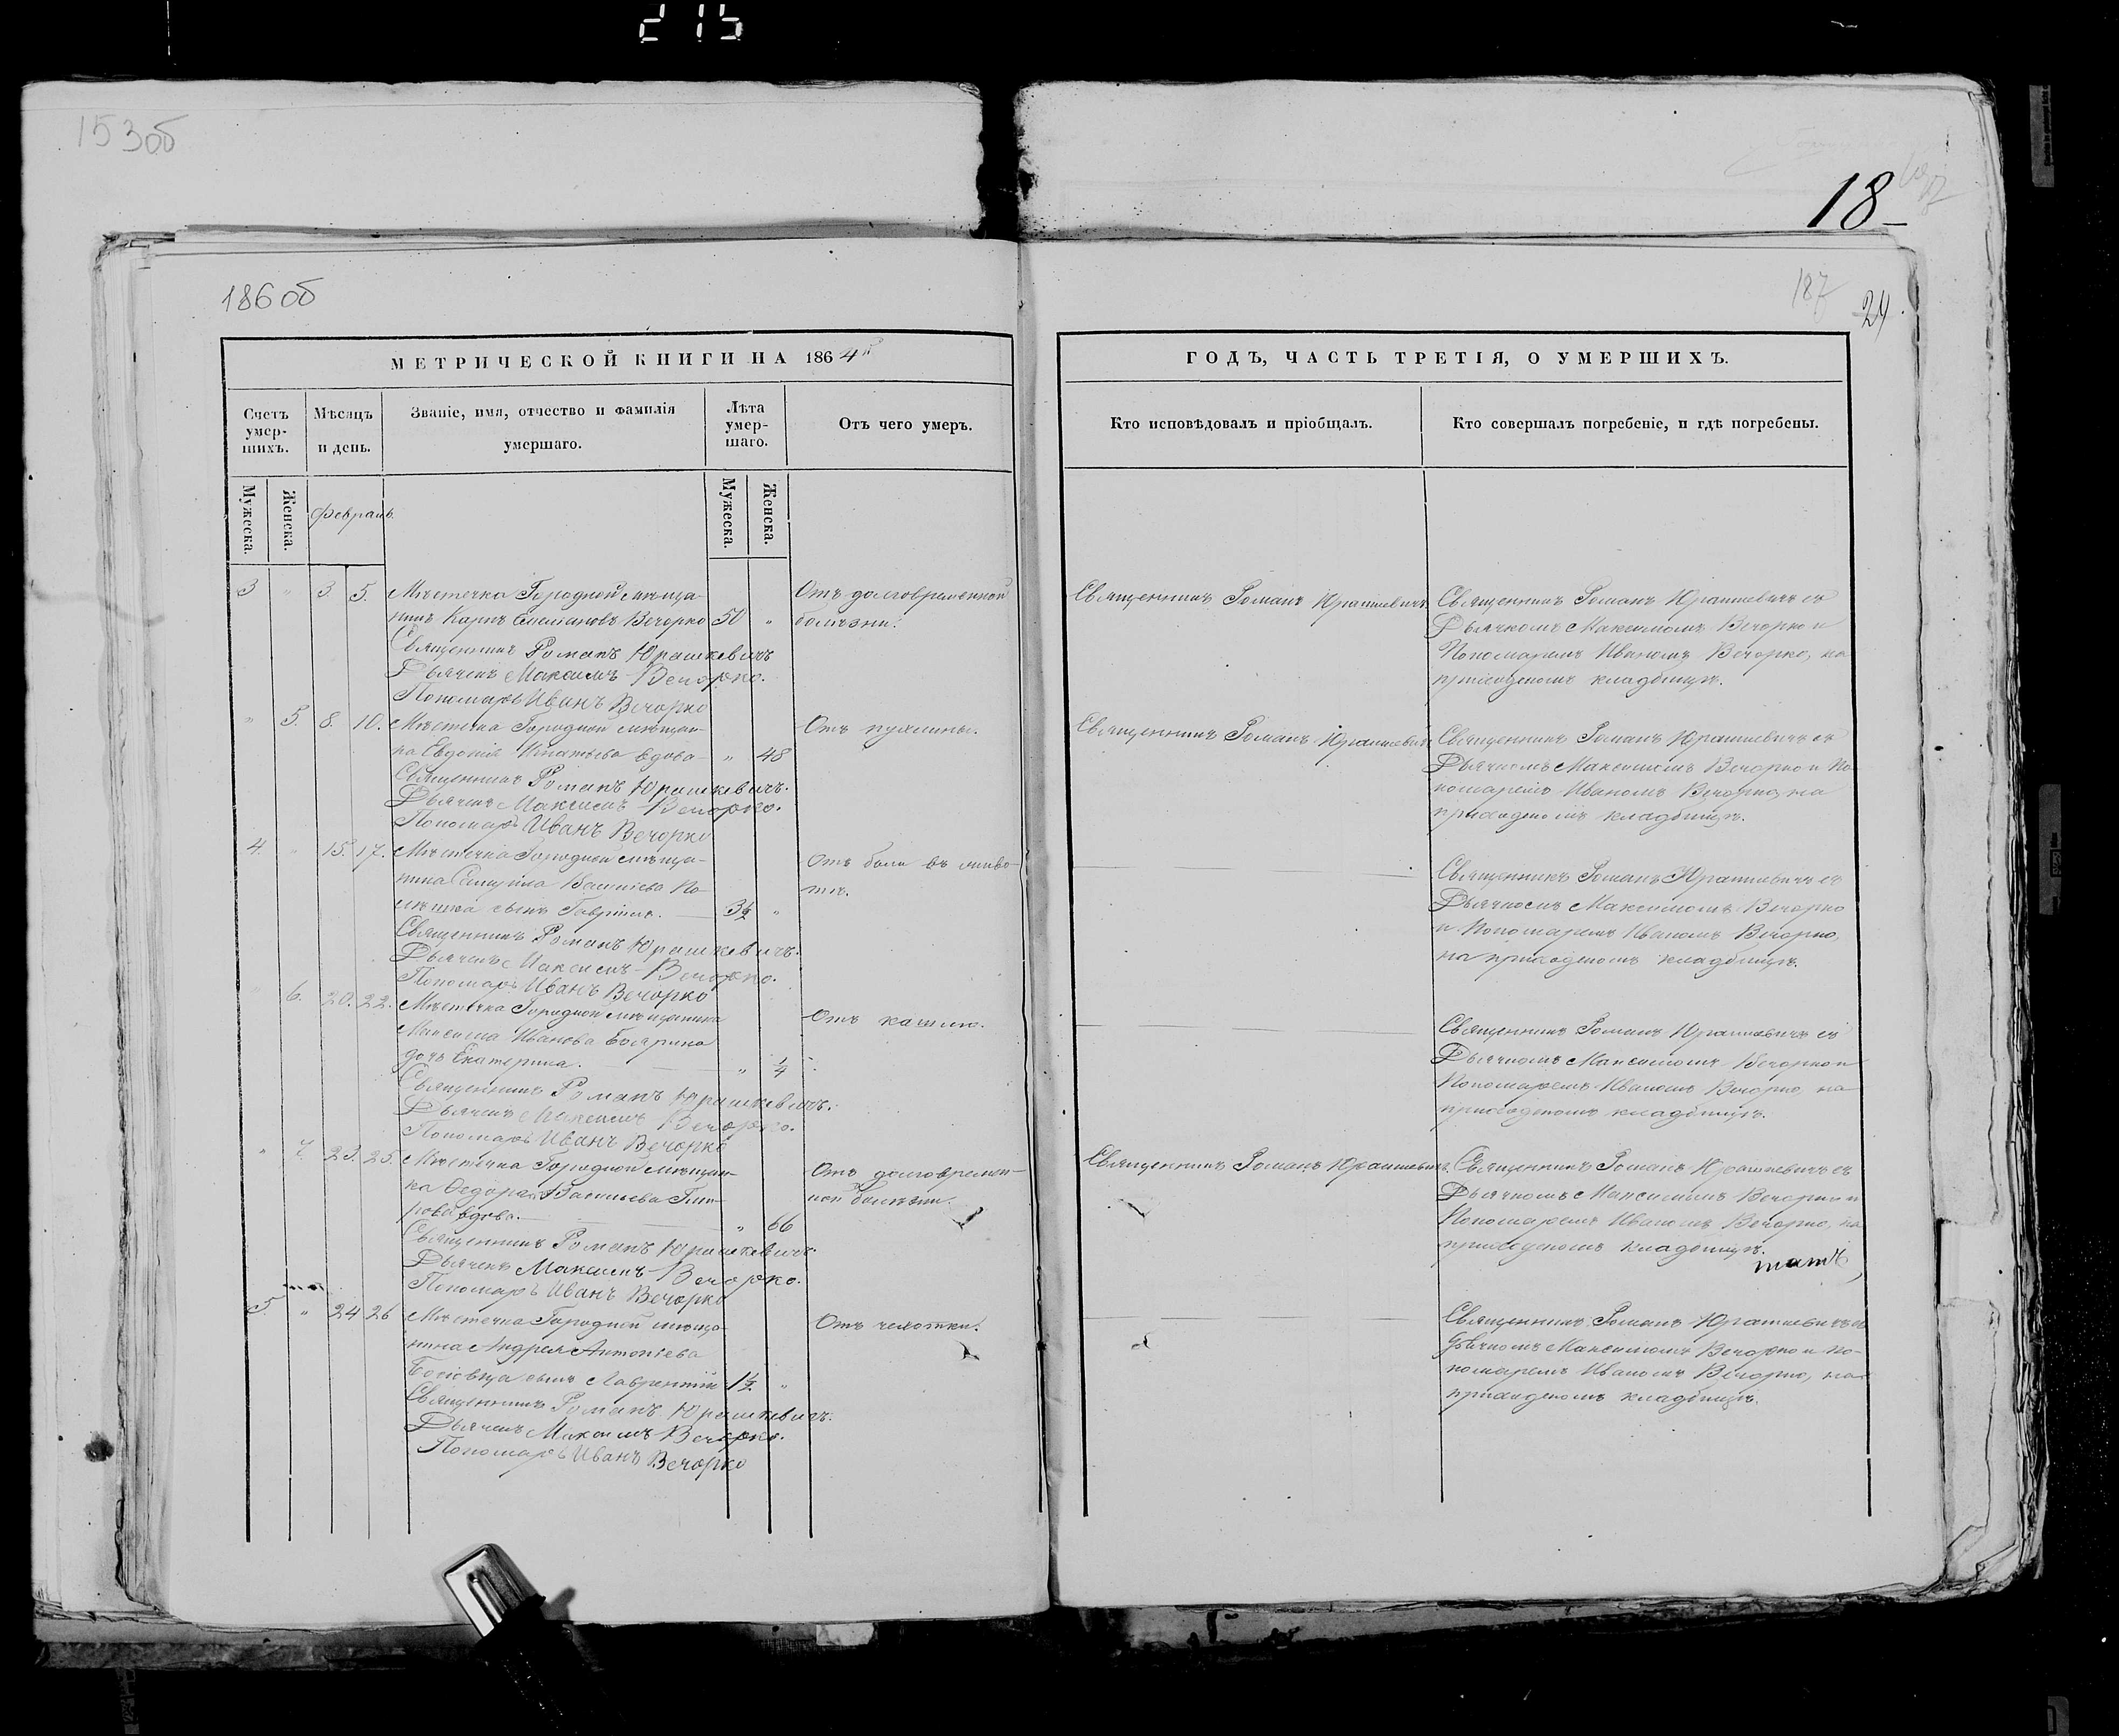 215
153об
18
186об
187
24
МЕТРИЧЕСКОЙ КНИГИ НА 1864й
Счетъ умер-шихъ.
Мѣсяцъ и день.
Званіе, имя, отчество и фамилія умершаго.
Лѣта умер-шаго.
Отъ чего умеръ.
Мужеска.
Женска.
Февраль.
Мужеска.
Женска.
3 " 3. 5. Мѣстечка Городной мѣща- Отъ долговременной
нинъ Карпъ Вечорко 50 " болѣзни.
Священникъ Романъ Юрашкевичъ
Дьячекъ Максимъ Вечорко.
Пономарь Иванъ Вечорко
" 5. 8. 10. Мѣстечка Городной мѣщан- Отъ
ка Евдокія Игнатьева вдова " 48
Священникъ Романъ Юрашкевичъ.
Дьячекъ Максимъ Вечорко.
Пономарь Иванъ Вечорко
4. " 15. 17. Мѣстечка Городной мѣща- Отъ боли въ живо-
нина Васильева По- тѣ.
сынъ Гавріилъ. 3½ "
Священникъ Романъ Юрашкевичъ.
Дьячекъ Максимъ Вечорко.
Пономарь Иванъ Вечорко
" 6. 20. 22. Мѣстечка Городной мѣщанина Отъ кашлю.
Максима Иванова Боярина
дочь Екатерина. " ¼
Священникъ Романъ Юрашкевичъ.
Дьячекъ Максимъ Вечорко.
Пономарь Иванъ Вечорко
" 7. 23. 25. Мѣстечка Городной мѣщан- Отъ долговремен-
ка Ѳедора Васильева ной болѣзни.
вдова. " 66
Священникъ Романъ Юрашкевичъ.
Дьячекъ Максимъ Вечорко.
Пономарь Иванъ Вечорко
5. " 24 26 Мѣстечка Городной мѣща- Отъ чахотки.
нина Андрея Антоніева
сынъ Лаврентій 1½ "
Священникъ Романъ Юрашкевичъ.
Дьячекъ Максимъ Вечорко.
Пономарь Иванъ Вечорко
ГОДЪ, ЧАСТЬ ТРЕТІЯ, О УМЕРШИХЪ.
Кто исповѣдовалъ и пріобщалъ.
Кто совершалъ погребеніе, и гдѣ погребены.
Священникъ Романъ Юрашкевичъ Священникъ Романъ Юрашкевичъ съ
Дьячкомъ Максимомъ Вечорко и
Пономаремъ Иваномъ Вечорко, на
приходскомъ кладбищѣ.
Священникъ Романъ Юрашкевичъ Священникъ Романъ Юрашкевичъ съ
Дьячкомъ Максимомъ Вечорко и По-
номаремъ Иваномъ Вечорко, на
приходскомъ кладбищѣ.
Священникъ Романъ Юрашкевичъ съ
Дьячкомъ Максимомъ Вечорко
и Пономаремъ Иваномъ Вечорко,
на приходскомъ кладбищѣ.
Священникъ Романъ Юрашкевичъ съ
Дьячкомъ Максимомъ Вечорко и
Пономаремъ Иваномъ Вечорко, на
приходскомъ кладбищѣ.
Священникъ Романъ Юрашкевичъ. Священникъ Романъ Юрашкевичъ съ
Дьячкомъ Максимомъ Вечорко и
Пономаремъ Иваномъ Вечорко, на
приходскомъ кладбищѣ.
Священникъ Романъ Юрашкевичъ съ
Дьячкомъ Максимомъ Вечорко и По-
номаремъ Иваномъ Вечорко, на
приходскомъ кладбищѣ.